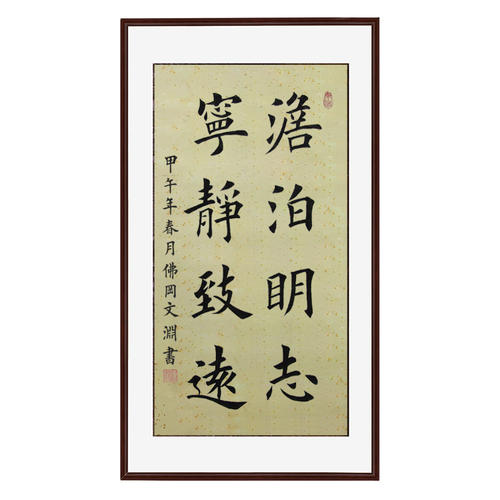 澹泊明志
寧靜致遠
甲午年春月佛岡文淵書